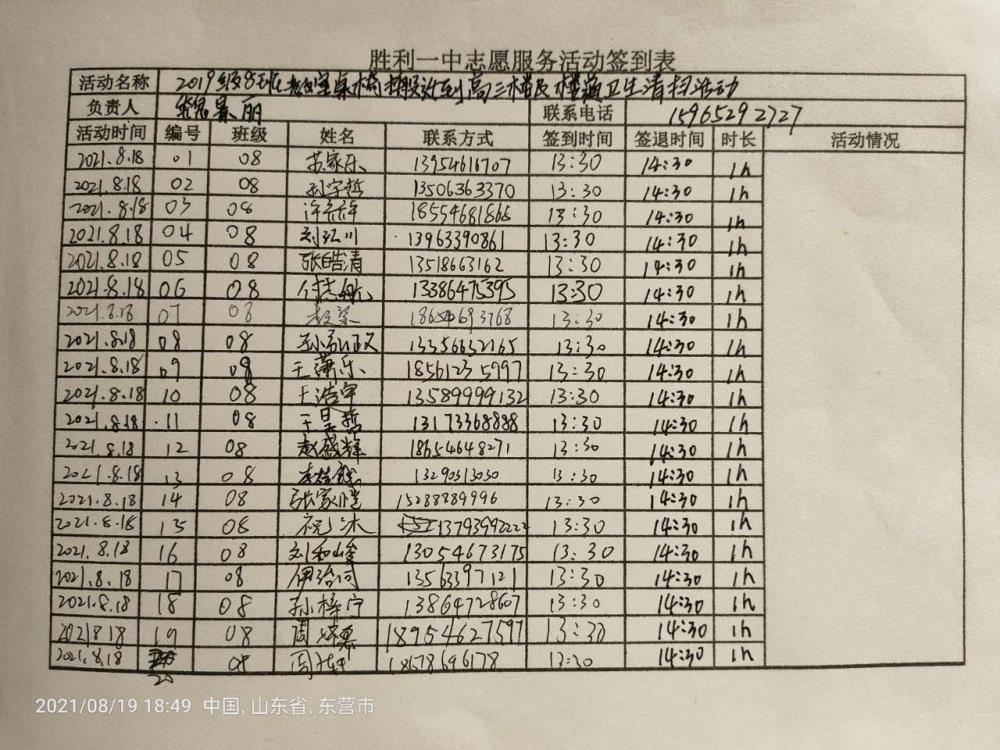 胜利一中志愿服务活动签到表
活动名称 2019级8班教室桌椅搬到高三楼及楼道卫生清扫活动
负责人 丽 联系电话 15965292727
活动时间 编号 班级 姓名 联系方式 签到时间 签退时间 时长 活动情况
2021.8.18 01 08 苏家乐 13954616707 13:30 14:30 1h
2021.8.18 02 08 孙宇哲 13506363370 13:30 14:30 1h
2021.8.18 03 08 18554681868 13:30 14:30 1h
2021.8.18 04 08 刘江川 13963390861 13:30 14:30 1h
2021.8.18 05 08 张皓清 13518663162 13:30 14:30 1h
2021.8.18 06 08 付志航 13386475395 13:30 14:30 1h
2021.8.18 07 08 13:30 14:30 1h
2021.8.18 08 08 13356632165 13:30 14:30 1h
2021.8.18 09 08 王潇乐 18561235997 13:30 14:30 1h
2021.8.18 10 08 王浩宇 13589999132 13:30 14:30 1h
2021.8.18 11 08 于昊哲 13173368888 13:30 14:30 1h
2021.8.18 12 08 赵盛辉 18654648271 13:30 14:30 1h
2021.8.18 13 08 13290313030 13:30 14:30 1h
2021.8.18 14 08 张家恺 15288889996 13:30 14:30 1h
2021.8.18 15 08 祝沐 13793992222 13:30 14:30 1h
2021.8.18 16 08 刘和峰 13054673175 13:30 14:30 1h
2021.8.18 17 08 伊治同 13563397121 13:30 14:30 1h
2021.8.18 18 08 孙梓宁 13864728607 13:30 14:30 1h
2021 8 18 19 08 周 18954627597 13:30 14:30 1h
2021.8.18 20 08 周 18678696178 13:30 14:30 1h
2021/08/19 18:49 中国, 山东省, 东营市